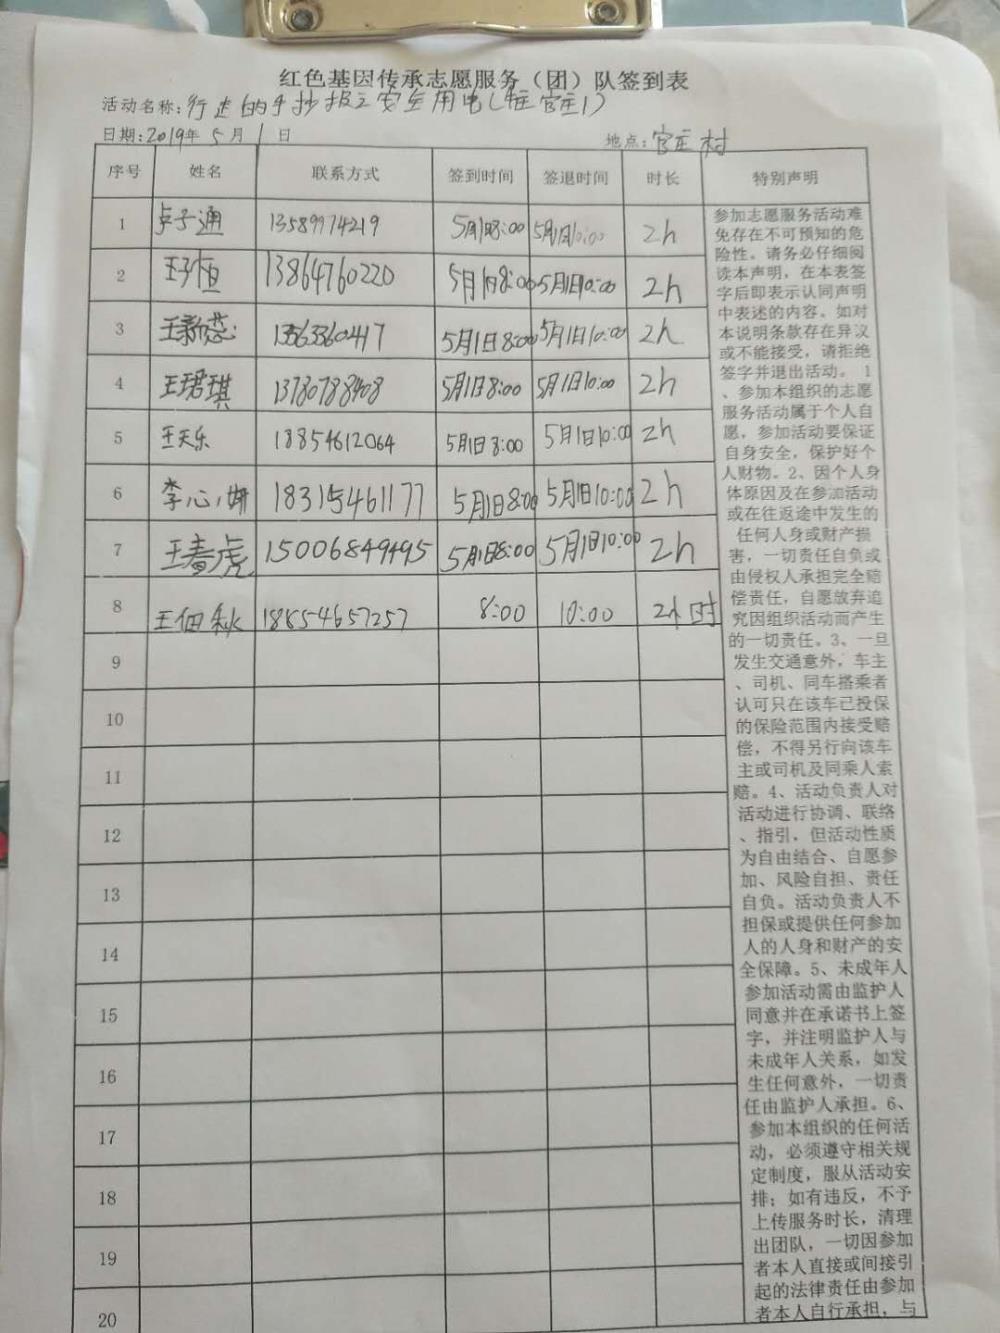 红色基因传承志愿服务（团）队签到表
活动名称：行走的手抄报之安全用电（驻官庄1）
日期：2019年5月1日 地点：官庄村
序号 姓名 联系方式 签到时间 签退时间 时长 特别声明
1 卢子通 13589974219 5月1日8:00 5月1日10:00 2h
2 王子恒 13864760220 5月1日8:00 5月1日10:00 2h
3 王新蕊 13563360417 5月1日8:00 5月1日10:00 2h
4 王珺琪 13780788408 5月1日8:00 5月1日10:00 2h
5 王天乐 18854612064 5月1日8:00 5月1日10:00 2h
6 李心妍 18315461177 5月1日8:00 5月1日10:00 2h
7 王春虎 15006849495 5月1日8:00 5月1日10:00 2h
8 王佃秋 18854657257 8:00 10:00 2小时
9
10
11
12
13
14
15
16
17
18
19
20
参加志愿服务活动难
免存在不可预知的危
险性。请务必仔细阅
读本声明，在本表签
字后即表示认同声明
中表述的内容。如对
本说明条款存在异议
或不能接受，请拒绝
签字并退出活动。 1
、参加本组织的志愿
服务活动属于个人自
愿，参加活动要保证
自身安全，保护好个
人财物。2、因个人身
体原因及在参加活动
或在往返途中发生的
任何人身或财产损
害，一切责任自负或
由侵权人承担完全赔
偿责任，自愿放弃追
究因组织活动而产生
的一切责任。3、一旦
发生交通意外，车主
、司机、同车搭乘者
认可只在该车已投保
的保险范围内接受赔
偿，不得另行向该车
主或司机及同乘人索
赔。4、活动负责人对
活动进行协调、联络
、指引，但活动性质
为自由结合、自愿参
加、风险自担、责任
自负。活动负责人不
担保或提供任何参加
人的人身和财产的安
全保障。5、未成年人
参加活动需由监护人
同意并在承诺书上签
字，并注明监护人与
未成年人关系，如发
生任何意外，一切责
任由监护人承担。6、
参加本组织的任何活
动，必须遵守相关规
定制度，服从活动安
排；如有违反，不予
上传服务时长，清理
出团队，一切因参加
者本人直接或间接引
起的法律责任由参加
者本人自行承担，与